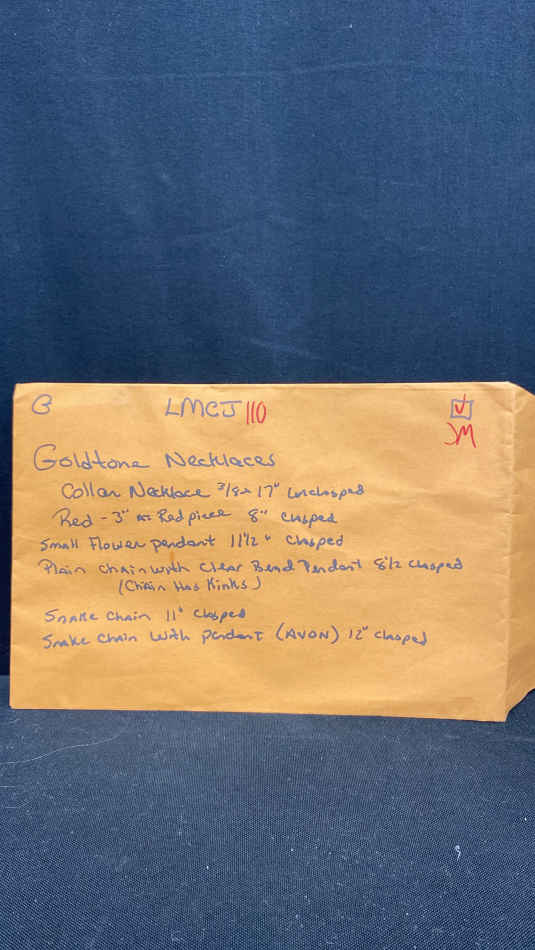 B LMCJ 110
JM
Goldtone Necklaces
Collar Necklace 3/8 x 17" unclasped
Red - 3" at Red piece 8" clasped
Small Flower pendant 11 1/2" clasped
Plain chain with clear Bead Pendant 8 1/2 clasped
(Chain Has Kinks)
Snake Chain 11" clasped
Snake Chain with pendant (AVON) 12" clasped